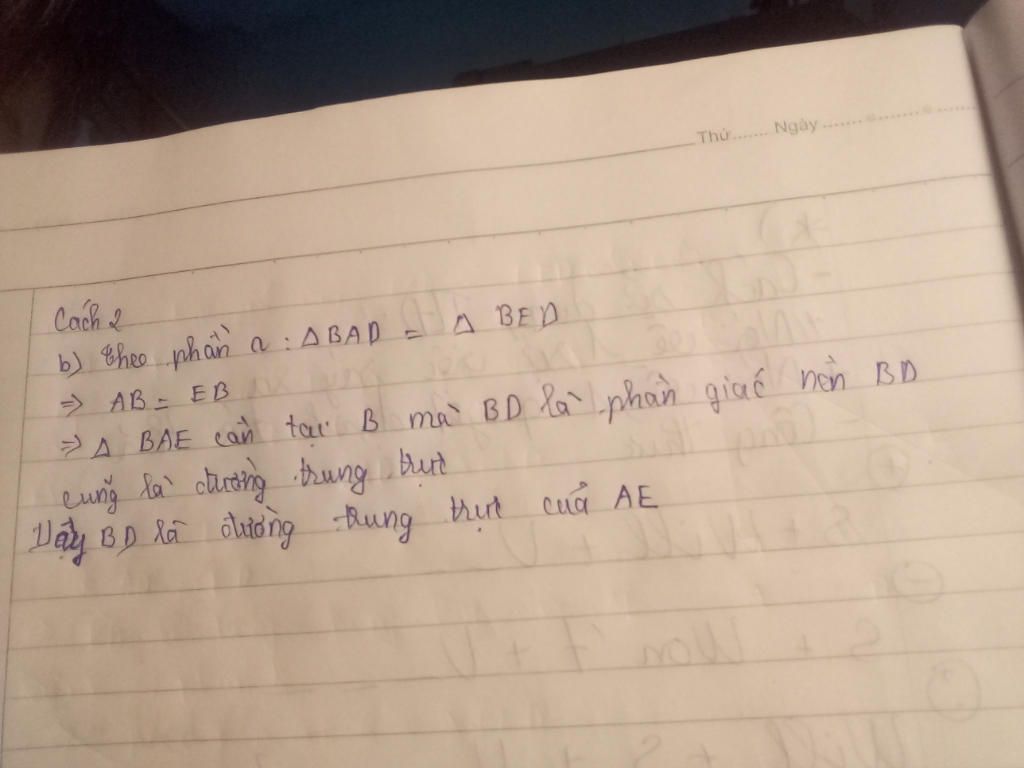 Thứ....... Ngày ...............
Cách 2
b) theo phần a : Δ BAD = Δ BED
⇒ AB = EB
⇒ Δ BAE cân tại B mà BD là phân giác nên BD
cũng là đường trung trực
Vậy BD là đường trung trực của AE